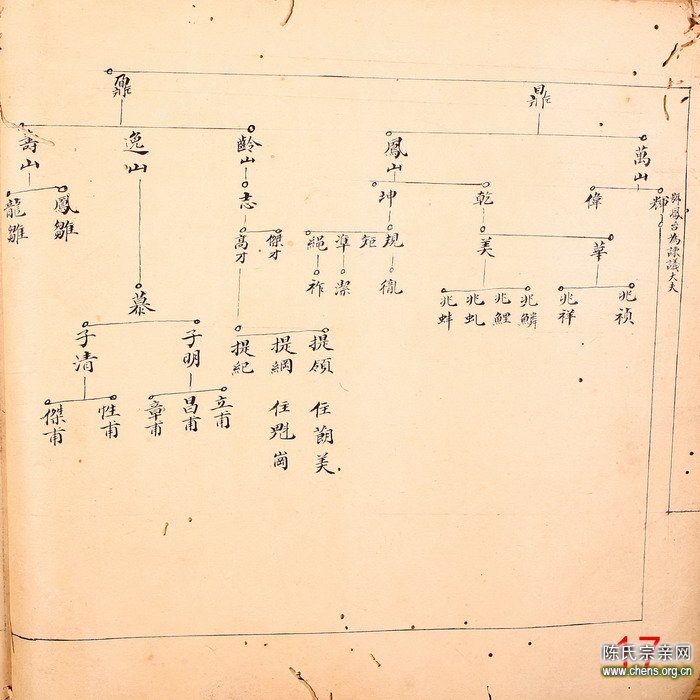 鼎
鼐
萬山
鳳山
齡山
逸山
壽山
輝
偉
乾
坤
志
鳳雛
龍雛
與鳳台為諫議大夫
華
美
規
矩
準
繩
傑才
高才
兆禎
兆祥
兆鱗
兆鯉
兆虬
兆蚌
胤
潔
祚
慕
提領 住蓢美
提綱 住
提紀
子明
子清
立甫
昌甫
章甫
性甫
傑甫
17
陈氏宗亲网
www.chens.org.cn